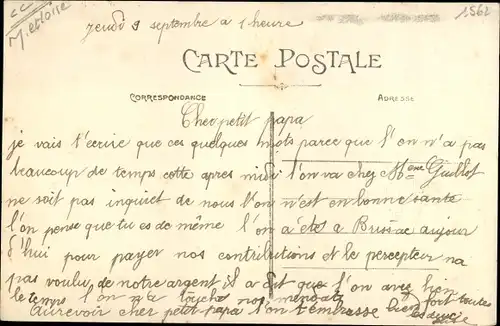 M. et Loire
1562
Jeudi 9 septembre a 1 heure
CARTE POSTALE
CORRESPONDANCE
ADRESSE
Cher petit papa
je vais t'ecrire que ces quelques mots parce que l'on n'a pas
beaucoup de temps cette apres midi l'on va chez Mme Guillot
ne soit pas inquiet de nous l'on n'est en bonne sante
l'on pense que tu es de même l'on a étés a Brissac aujour
d'hui pour payer nos contributions et le percepteur na
pas voulu de notre argent il a dit que l'on avez bien
le temps l'on n'a touche nos mendats
Aurevoir cher petit papa l'on t'embrasse bien fort toutes
les deux